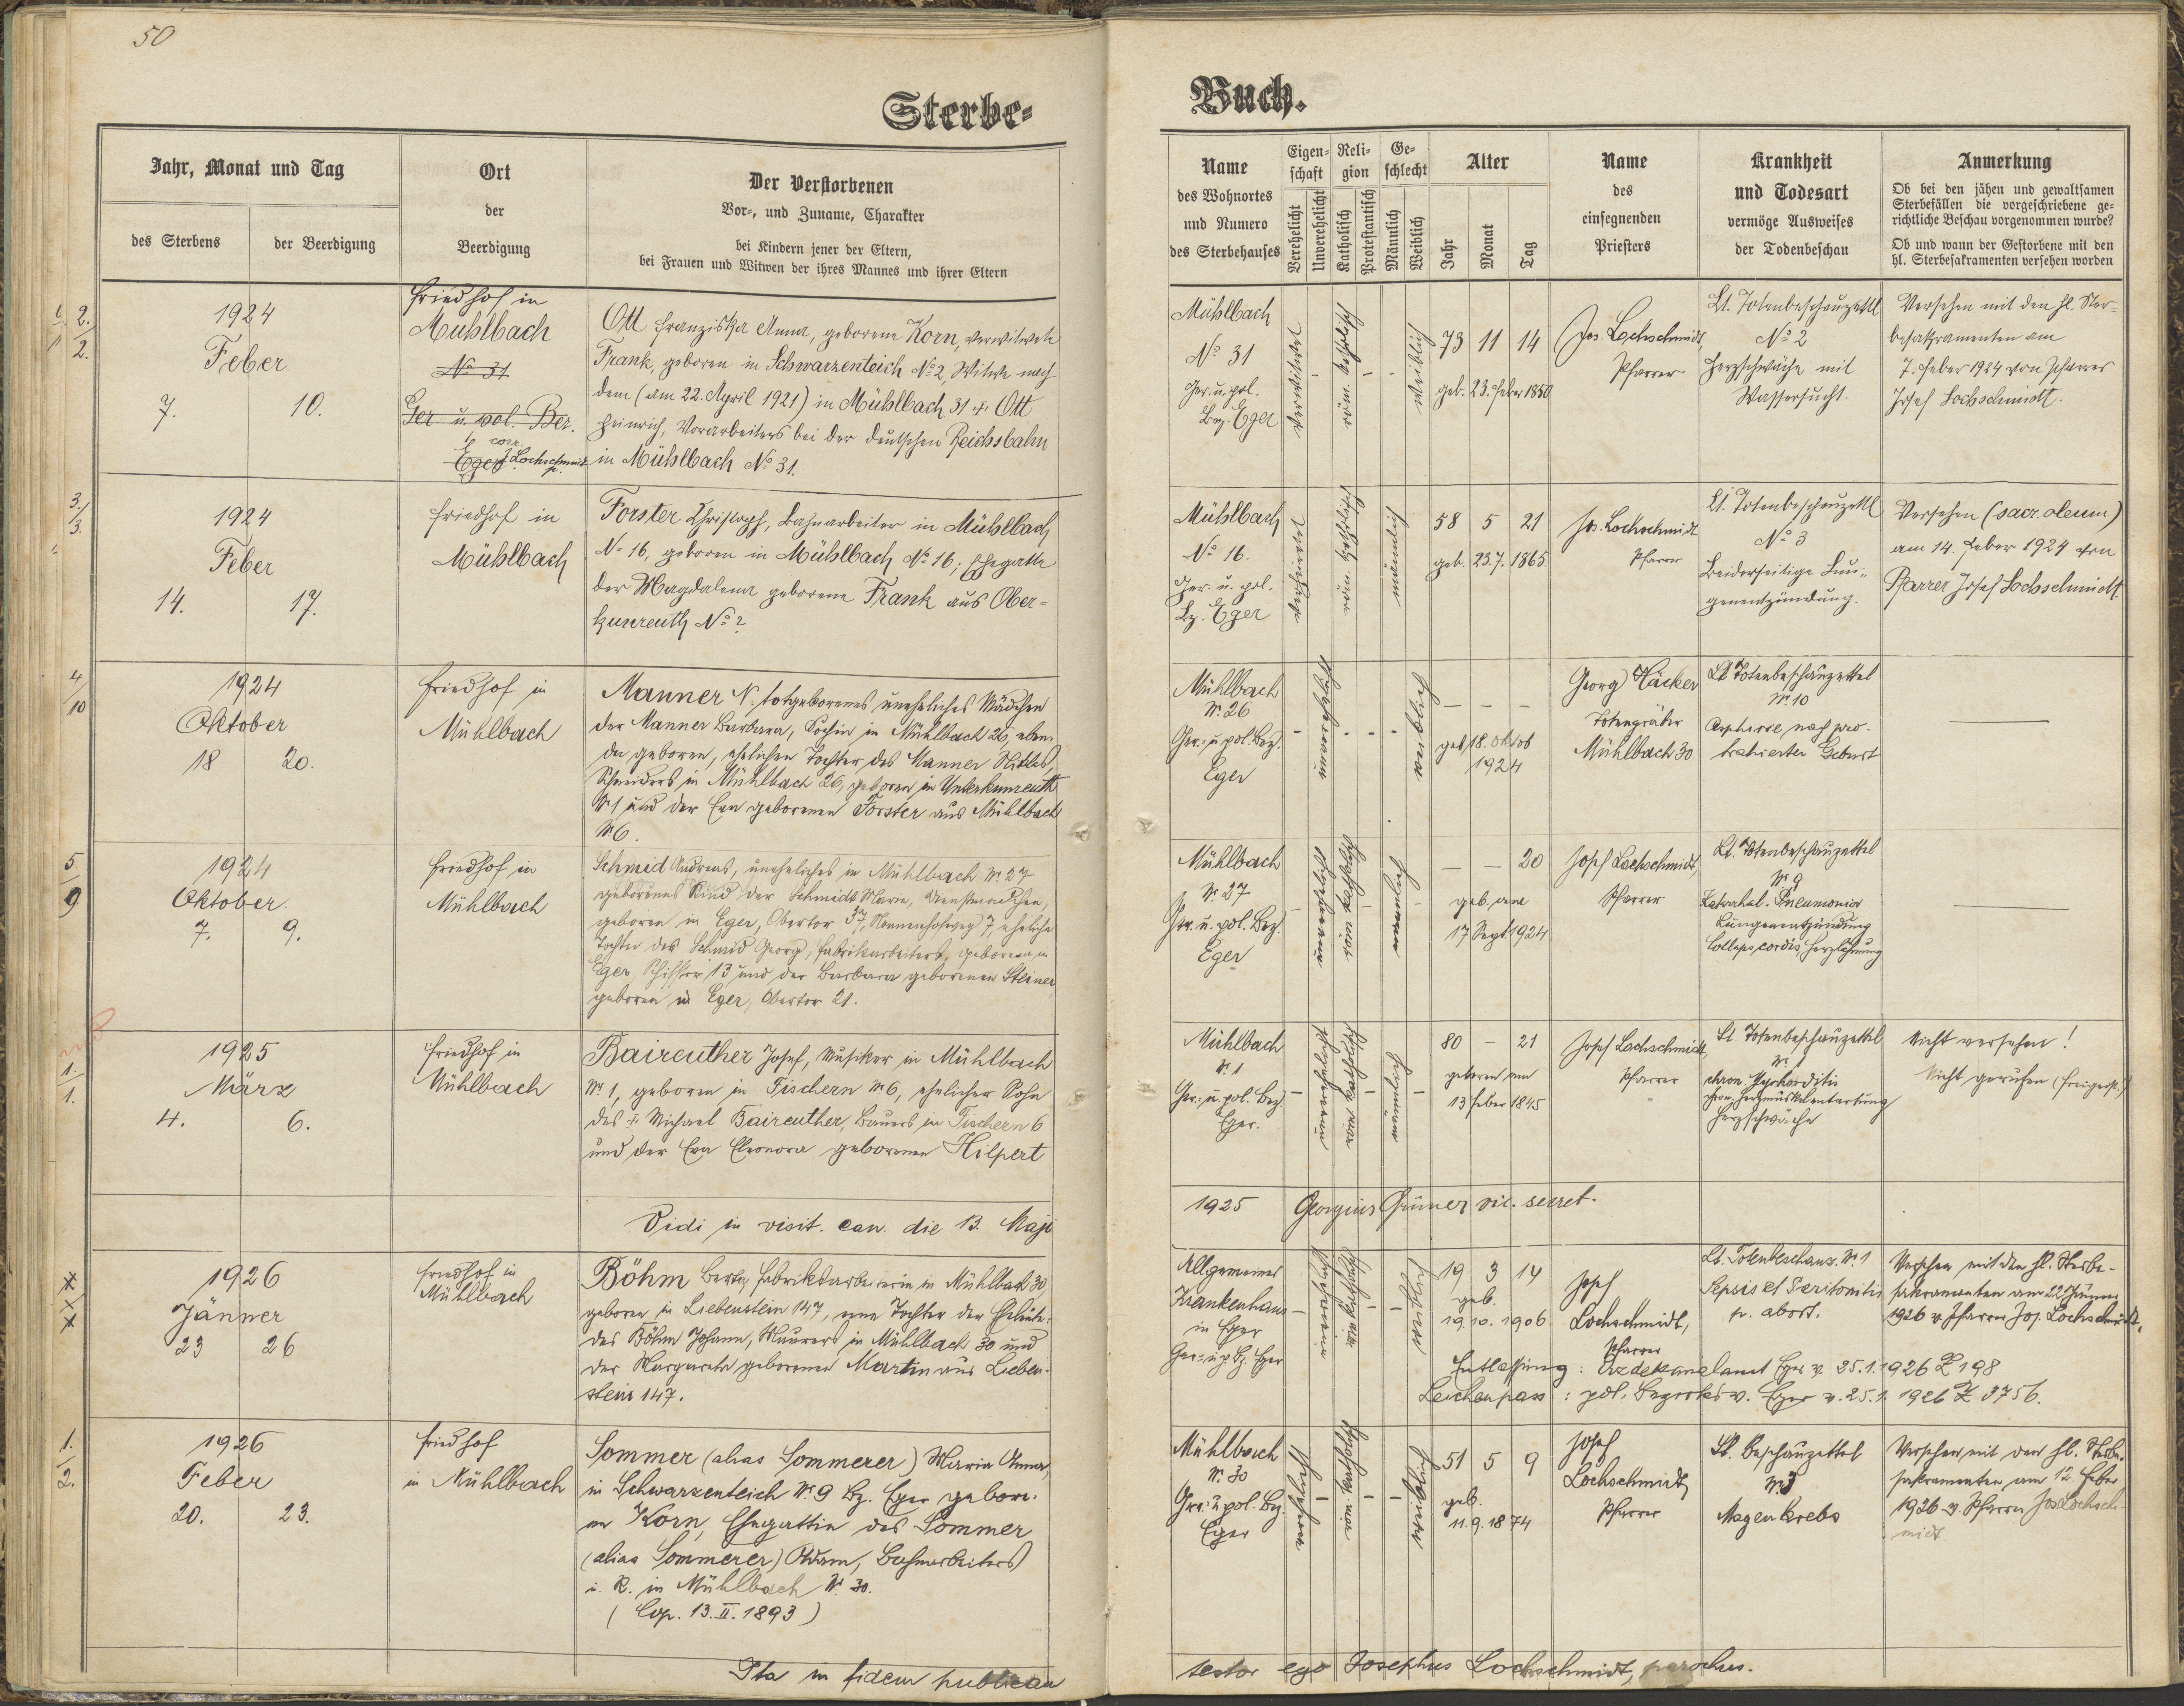 50
Sterbe-
Buch.
Jahr, Monat und Tag
des Sterbens
der Beerdigung
Ort
der
Beerdigung
Der Verstorbenen
Vor-, und Zuname, Charakter
bei Kindern jener der Eltern,
bei Frauen und Witwen der ihres Mannes und ihrer Eltern
Name
des Wohnortes
und Numero
des Sterbehauses
Eigen-
schaft
Verehelicht
Unverehelicht
Reli-
gion
Katholisch
Protestantisch
Ge-
schlecht
Männlich
Weiblich
Alter
Jahr
Monat
Tag
Name
des
einsegnenden
Priesters
Krankheit
und Todesart
vermöge Ausweises
der Todenbeschau
Anmerkung
Ob bei den jähen und gewaltsamen
Sterbefällen die vorgeschriebene ge-
richtliche Beschau vorgenommen wurde?
Ob und wann der Gestorbene mit den
hl. Sterbesakramenten versehen worden
2.
2.
1924
Feber
7.
10.
Friedhof in
Mühlbach
No 31
Ger- u. pol. Bez.
Eger
corr.
J. Lochschmidt
Ott Franziska Anna, geborene Korn, verwitwete
Frank, geboren in Schwarzenteich No 2, Witwe nach
dem (am 22. April 1921) in Mühlbach 31 + Ott
Heinrich, Vorarbeiters bei der deutschen Reichsbahn
in Mühlbach No 31.
Mühlbach
No 31
Ger. u. pol.
Bez. Eger
verwitwet
-
röm. katholisch
-
-
weiblich
73 11 14
geb. 23. Feber 1850
Jos. Lochschmidt
Pfarrer
Lt. Totenbeschauzettl
No 2
Herzschwäche mit
Wassersucht.
Versehen mit den hl. Ster-
besakramenten am
7. Feber 1924 von Pfarrer
Josef Lochschmidt.
3.
3.
1924
Feber
14.
17.
Friedhof in
Mühlbach
Forster Christoph, Bahnarbeiter in Mühlbach
No 16, geboren in Mühlbach No 16; Ehegatte
der Magdalena geborene Frank aus Ober-
kunreuth No 2
Mühlbach
No 16.
Ger. u. pol.
Bz. Eger
verheiratet
röm. katholisch
männlich
58 5 21
geb. 23.7. 1865
Jos. Lochschmidt
Pfarrer
Lt. Totenbeschauzettl
No 3
Beiderseitige Lun-
genentzündung.
Versehen (sacr. oleum)
am 14. Feber 1924 von
Pfarrer Josef Lochschmidt.
4
10
1924
Oktober
18
20.
Friedhof in
Mühlbach
Manner N. totgeborenes uneheliches Mädchen
der Manner Barbara, Köchin in Mühlbach 26, eben-
da geboren, ehelichen Tochter des Manner
Schneiders in Mühlbach 26, geboren in Unterkunreuth
No 1 und der Eva geborenen Forster aus Mühlbach
No 6.
Mühlbach
No. 26
Ger.- u. pol. Bez.
Eger
-
unverehelicht
- - -
weiblich
— — —
geb. 18. Oktob
1924
Georg Häcker
Totengräber
Mühlbach 30
Lt. Totenbeschauzettel
No. 10
Asphyxie nach pro-
trahierter Geburt
—
5
9
1924
Oktober
7.
9.
Friedhof in
Mühlbach
Schmid Andreas, uneheliches in Mühlbach No 27
geborenes Kind der Schmidt Marie, Dienstmädchen,
geboren in Eger, Obertor 37, Nonnenhofweg 7, eheliche
Tochter des Schmid Georg, Fabrikarbeiters, geboren in
Eger, Schifftor 13 und der Barbara geborenen Steiner
geboren in Eger, Obertor 21.
Mühlbach
No. 27
Ger. u. pol. Bez.
Eger
-
unverehelicht
röm. katholisch
-
männlich
-
— — 20
geb. am
17 Sept. 1924
Josef Lochschmidt,
Pfarrer
Lt. Totenbeschauzettel
No. 9
Katarrhal. Pneumonia
Lungenentzündung
Collaps cordis, Herzlähmung
—
1.
1.
1925
März
4.
6.
Friedhof in
Mühlbach
Baireuther Josef, Musiker in Mühlbach
No. 1, geboren in Fischern No 6, ehelicher Sohn
des + Michael Baireuther, Bauers in Fischern 6
und der Eva Eleonora geborenen Hilpert
Mühlbach
No. 1
Ger.- u. pol. Bez.
Eger.
-
unverehelicht
röm. katholisch
-
männlich
-
80 - 21
geboren am
13 Feber 1845
Josef Lochschmidt,
Pfarrer
Lt Totenbeschauzettel
No. 1
chron. Myokarditis
chron. Herzmuskelentartung
Herzschwäche
Nicht versehen!
Nicht gerufen
Vidi in visit. can. die 13. Maji
1925 Georgius Gruner vic. secret.
X
X
X
1926
Jänner
23
26
Friedhof in
Mühlbach
Böhm Berta, Fabriksarbeiterin in Mühlbach 30,
geboren in Liebenstein 147, eine Tochter der Eheleute:
des Böhm Johann, Maurers in Mühlbach 30 und
der Margareta geborenen Martin aus Lieben-
stein 147.
Allgemeines
Krankenhaus
in Eger
Ger.- u. p. Bz. Eger
-
röm. katholisch
- -
weiblich
19 3 14
geb.
19. 10. 1906
Josef
Lochschmidt,
Pfarrer
Lt. Totenbeschauz. No. 1
Sepsis et Peritonitis
p. abort.
Versehen mit den hl. Sterbe-
sakramenten am 22. Jänner
1926 v. Pfarrer Jos. Lochschmidt.
Entlassung: Erzdekanalamt Eger v. 25.1.1926 Z 198
Leichenpass: pol. Bezirksv. Eger v. 25.1. 1926 Z 3756.
1.
2.
1926
Feber
20.
23.
Friedhof
in Mühlbach
Sommer (alias Sommerer) Maria Anna,
in Schwarzenteich No. 9 Bz. Eger gebore-
ne Korn, Ehegattin des Sommer
(alias Sommerer) Adam, Bahnarbeiters
i. R. in Mühlbach No. 30.
(Cop. 13. II. 1893)
Mühlbach
No. 30
Ger.- u. pol. Bz.
Eger
verehelicht
-
röm. katholisch
- -
weiblich
51 5 9
geb.
11. 9. 1874
Josef
Lochschmidt
Pfarrer
Lt. Beschauzettel
Magenkrebs
Versehen mit den hl. Sterbe-
sakramenten am 12 Feber
1926 v. Pfarrer Jos Lochsch-
midt.
Ita in fidem publicam
testor ego Josephus Lochschmidt, parochus.